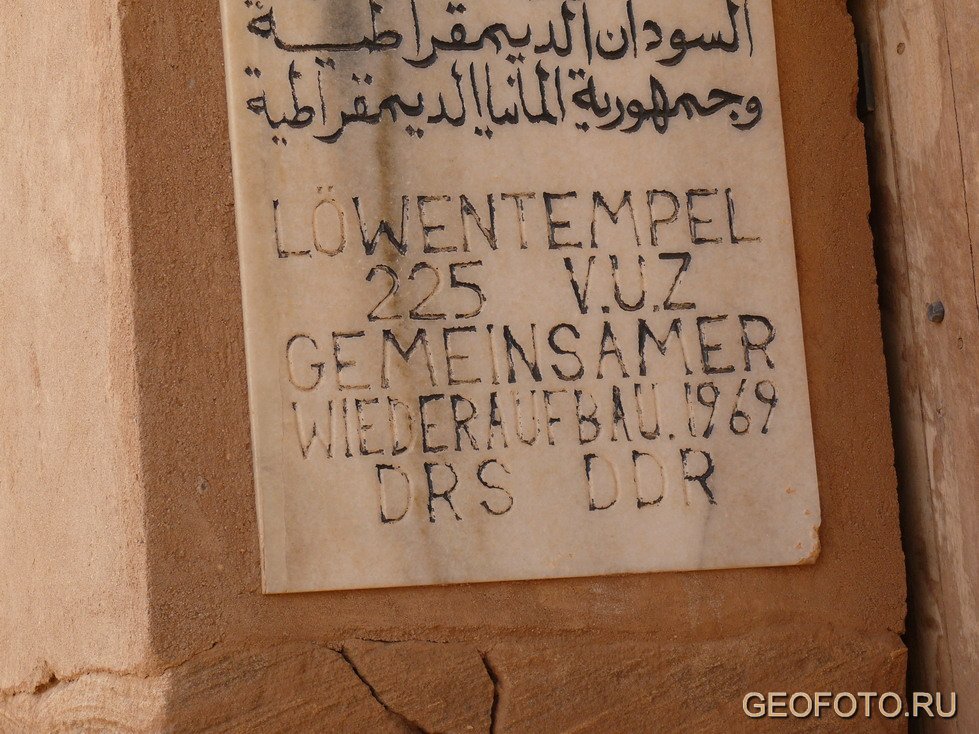 السودان الديمقراطية
وجمهورية المانيا الديمقراطية
LÖWENTEMPEL
225 V.U.Z
GEMEINSAMER
WIEDERAUFBAU.1969
DRS DDR
GEOFOTO.RU